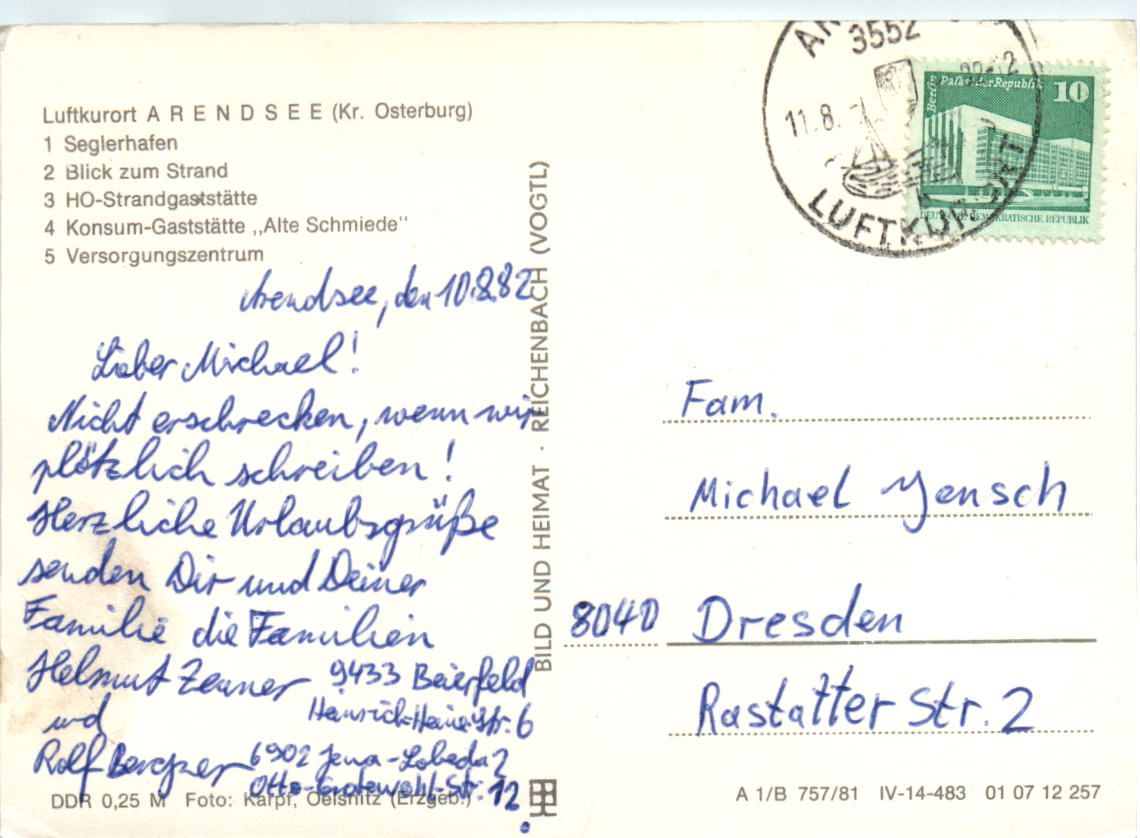 Luftkurort ARENDSEE (Kr. Osterburg)
1 Seglerhafen
2 Blick zum Strand
3 HO-Strandgaststätte
4 Konsum-Gaststätte „Alte Schmiede"
5 Versorgungszentrum
Arendsee, den 10.8.82
Lieber Michael!
Nicht erschrecken, wenn wir
plötzlich schreiben!
Herzliche Urlaubsgrüße
senden Dir und Deiner
Familie die Familien
Helmut Zenner 9433 Beierfeld
Heinrich-Heine-Str. 6
und
Rolf Bergner 6902 Jena-Lobeda 2
Otto-Grotewohl-Str. 12
DDR 0,25 M Foto: Karpf, Oelsnitz (Erzgeb.)
BILD UND HEIMAT · REICHENBACH (VOGTL)
3552
11.8.
LUFTKURORT
Berlin Palast der Republik 10
DEUTSCHE DEMOKRATISCHE REPUBLIK
Fam.
Michael Jensch
8040 Dresden
Rastatter Str. 2
A 1/B 757/81 IV-14-483 01 07 12 257